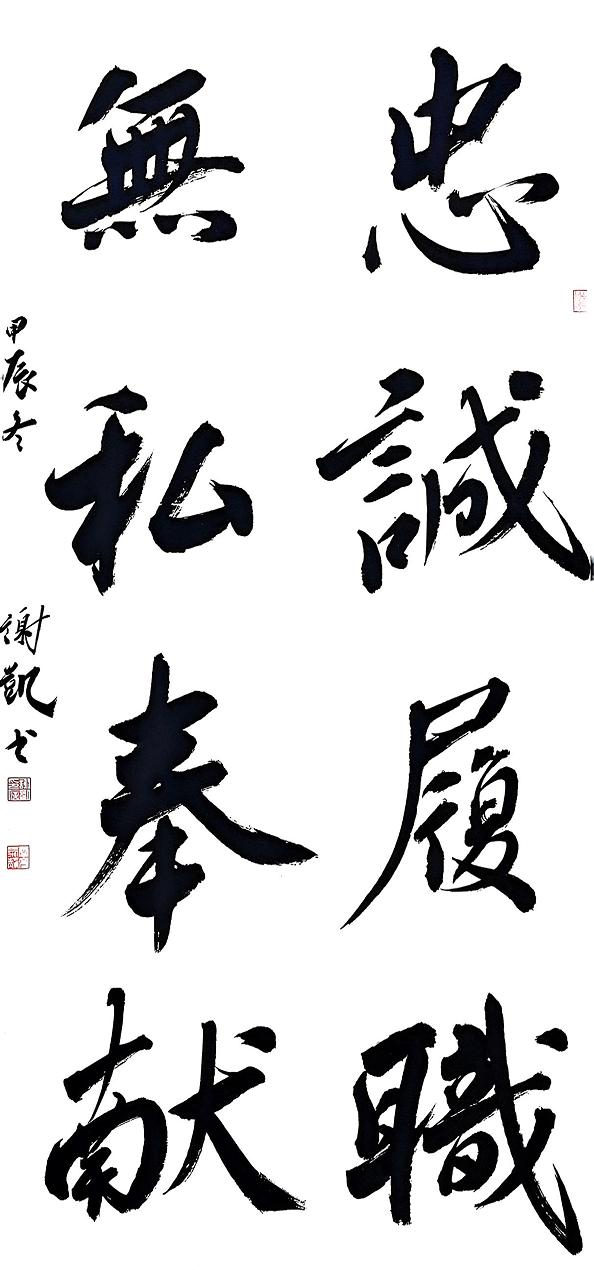 忠誠履職
無私奉献
甲辰冬 謝凱书